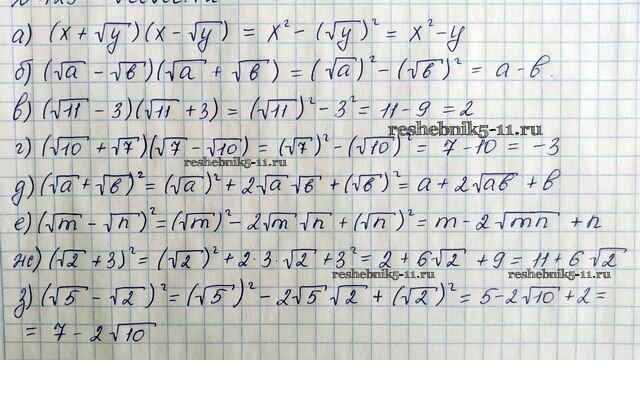 а) (x + √y)(x − √y) = x² − (√y)² = x² − y
б) (√a − √b)(√a + √b) = (√a)² − (√b)² = a − b.
в) (√11 − 3)(√11 + 3) = (√11)² − 3² = 11 − 9 = 2
reshebnik5-11.ru
г) (√10 + √7)(√7 − √10) = (√7)² − (√10)² = 7 − 10 = −3
reshebnik5-11.ru
д) (√a + √b)² = (√a)² + 2√a √b + (√b)² = a + 2√ab + b
е) (√m − √n)² = (√m)² − 2√m √n + (√n)² = m − 2√mn + n
ж) (√2 + 3)² = (√2)² + 2·3·√2 + 3² = 2 + 6√2 + 9 = 11 + 6√2
reshebnik5-11.ru reshebnik5-11.ru
з) (√5 − √2)² = (√5)² − 2√5 √2 + (√2)² = 5 − 2√10 + 2 =
= 7 − 2√10